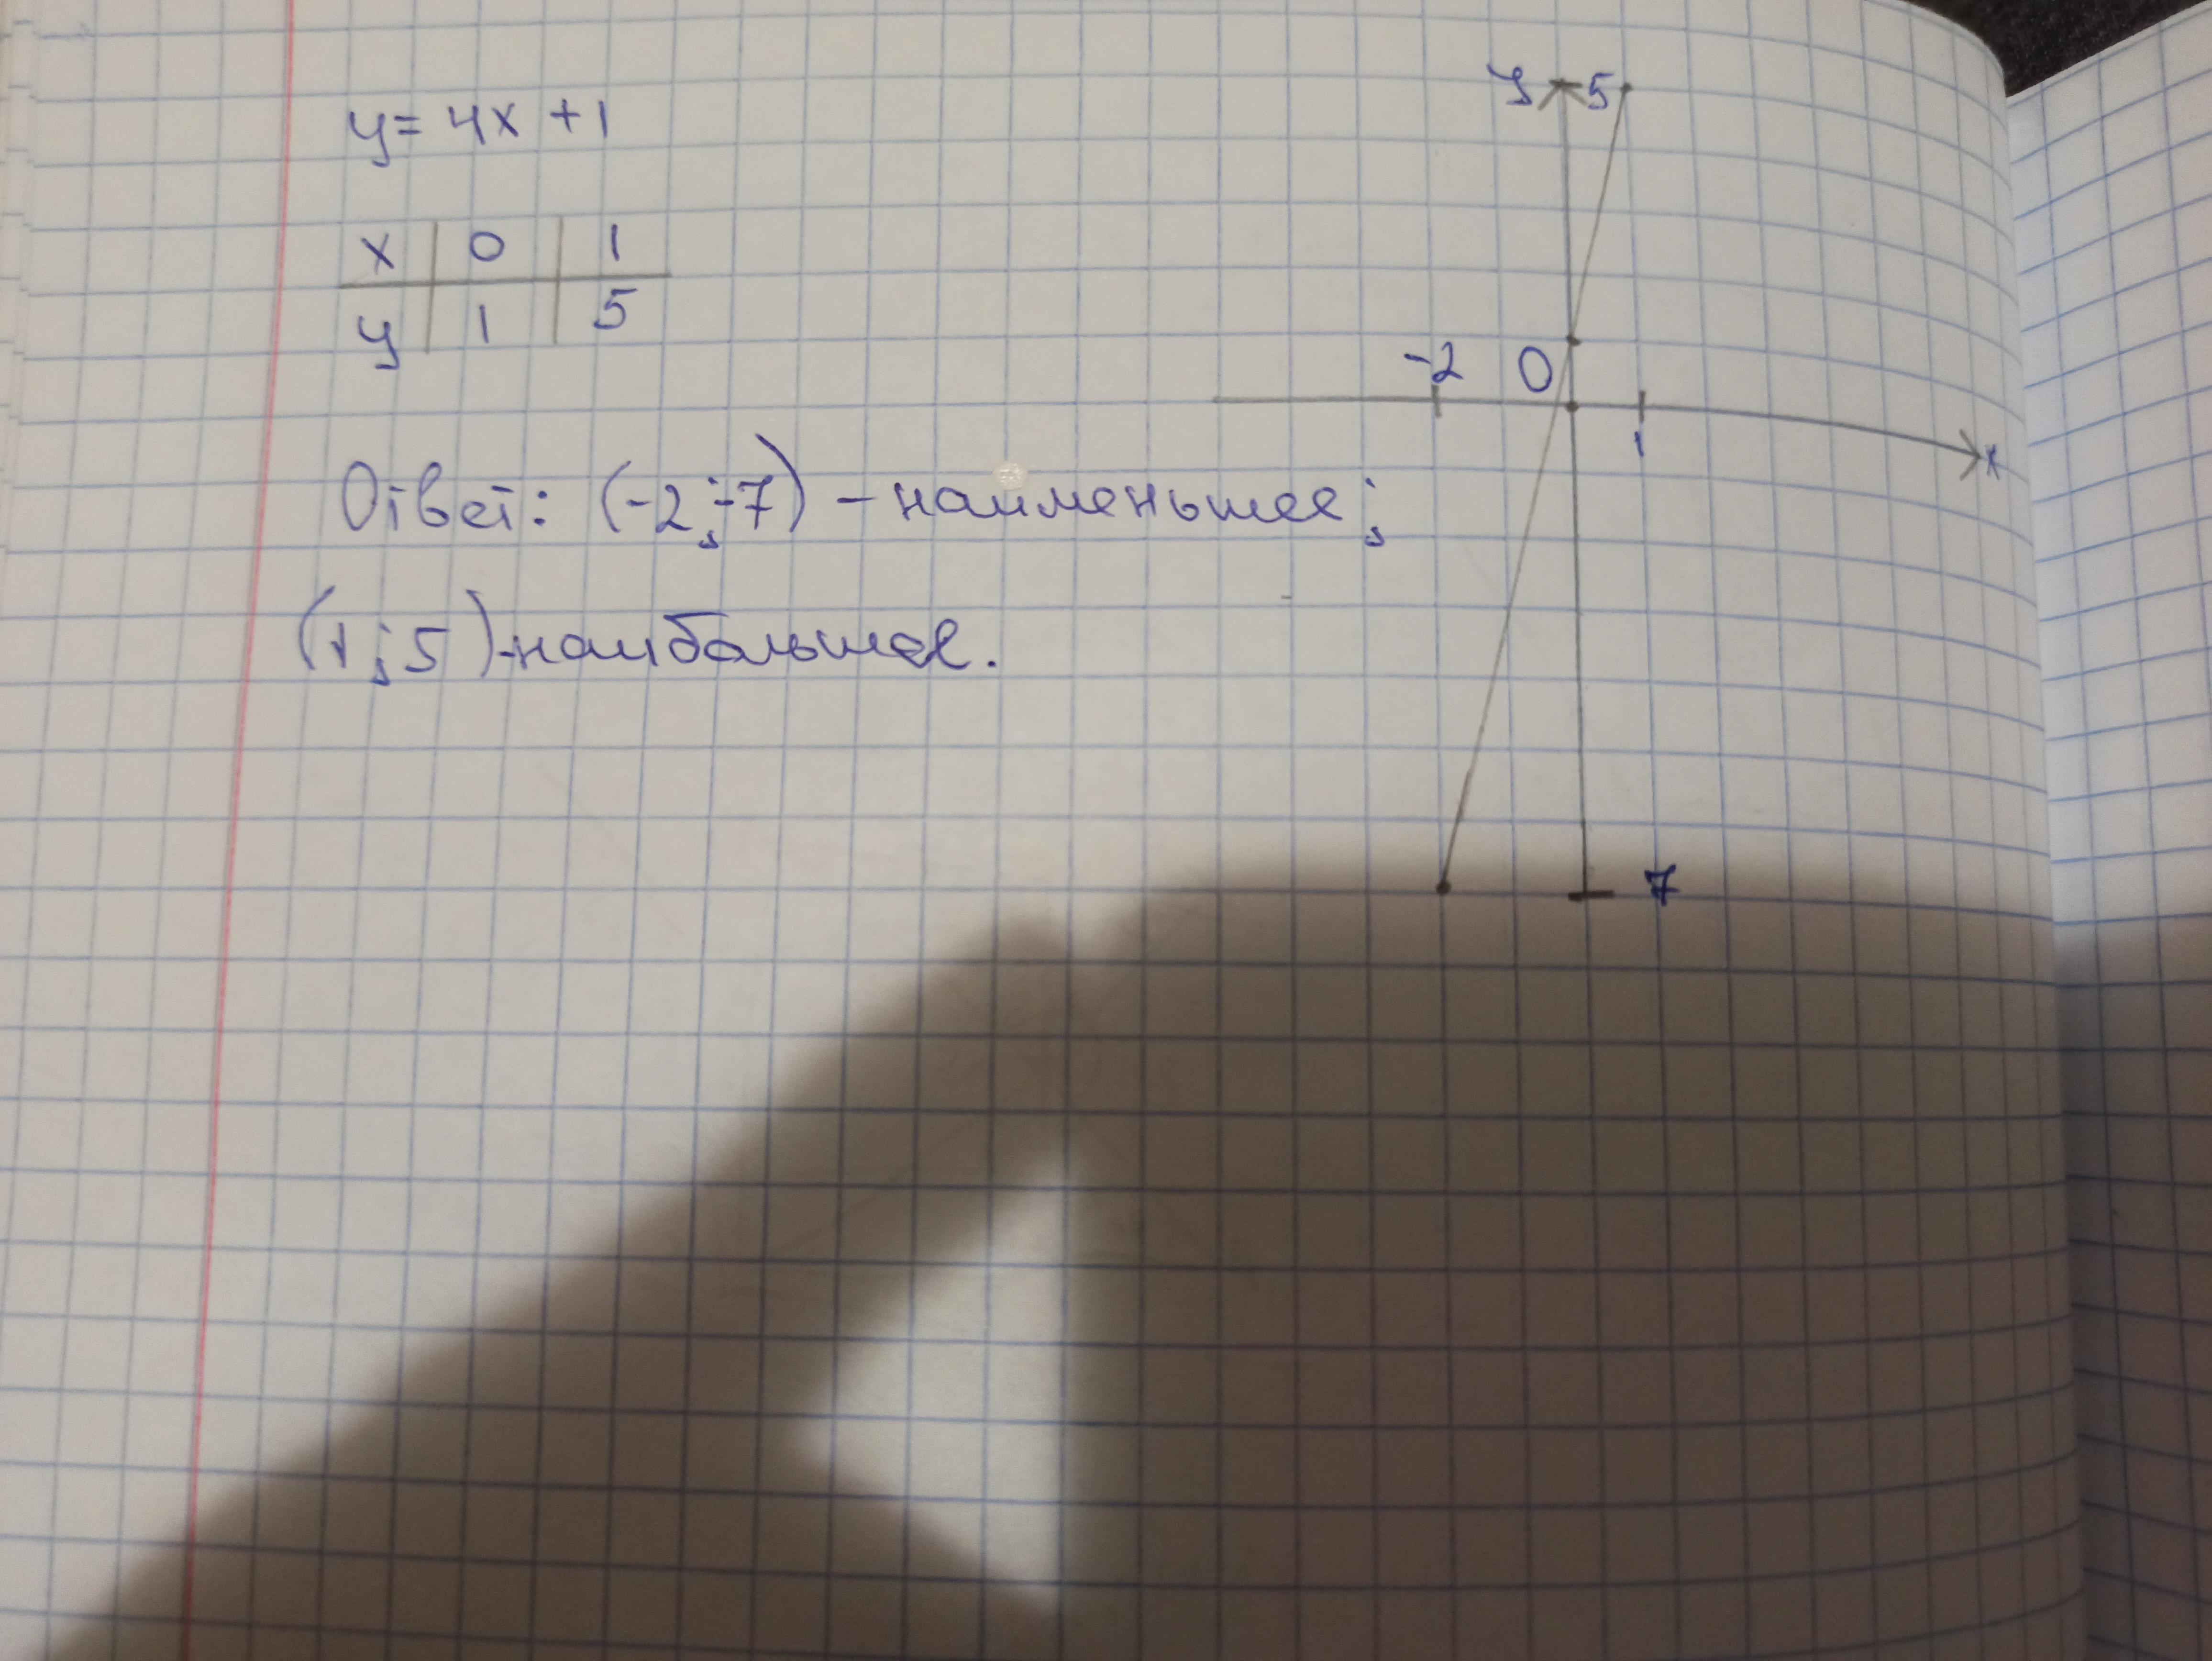 y = 4x + 1
x 0 1
y 1 5
Ответ: (-2; -7) - наименьшее;
(1; 5) - наибольшее.
y 5
-2 0
1 x
7